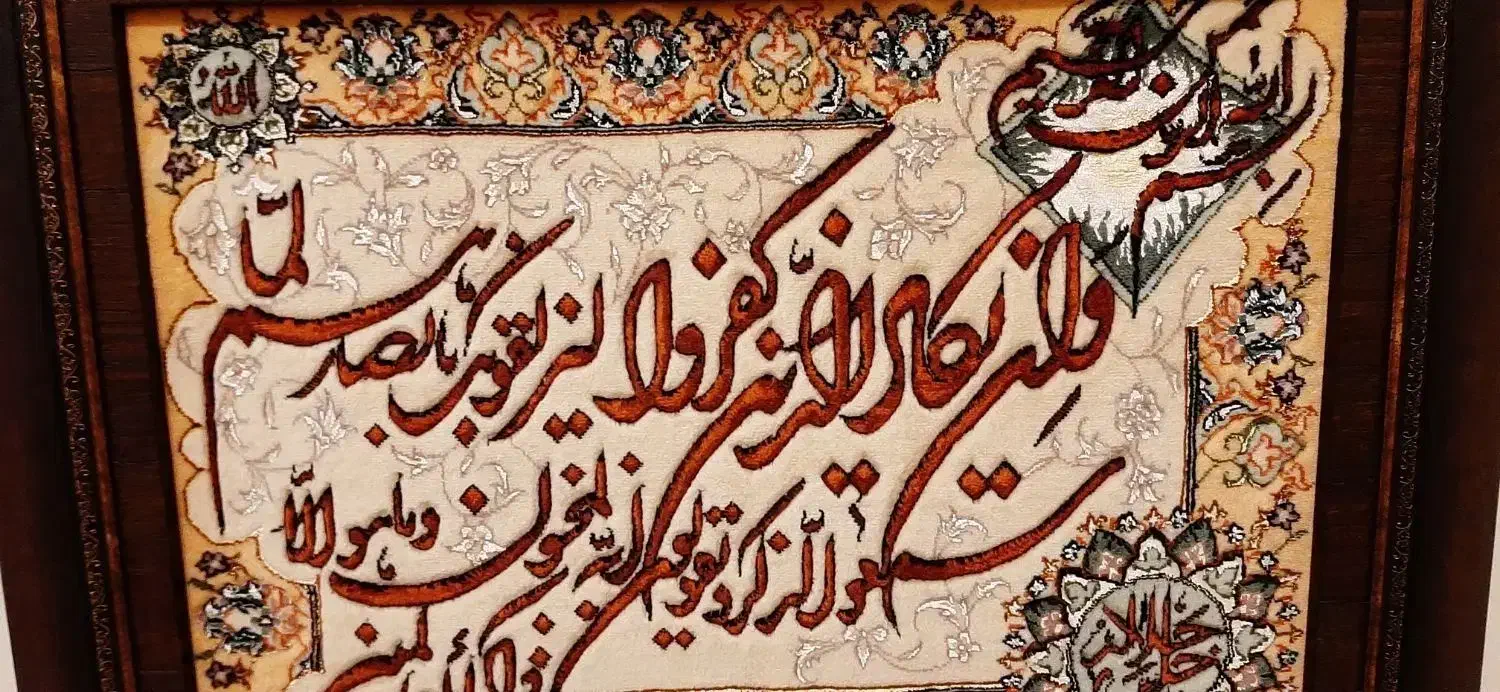 الله
بسم الله الرحمن الرحیم
وَاِن یکاد الذین کفروا لیزلقونک بابصارهم لمّا
سمعوا الذکر و یقولون انه لمجنون و ما هو الّا